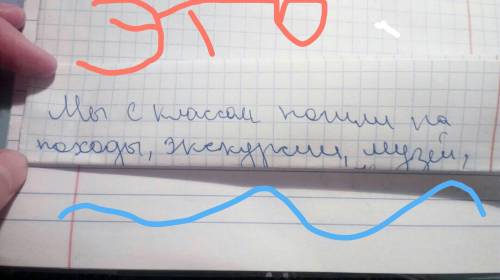 Мы с классом пошли на
походы, экскурсии, музей,